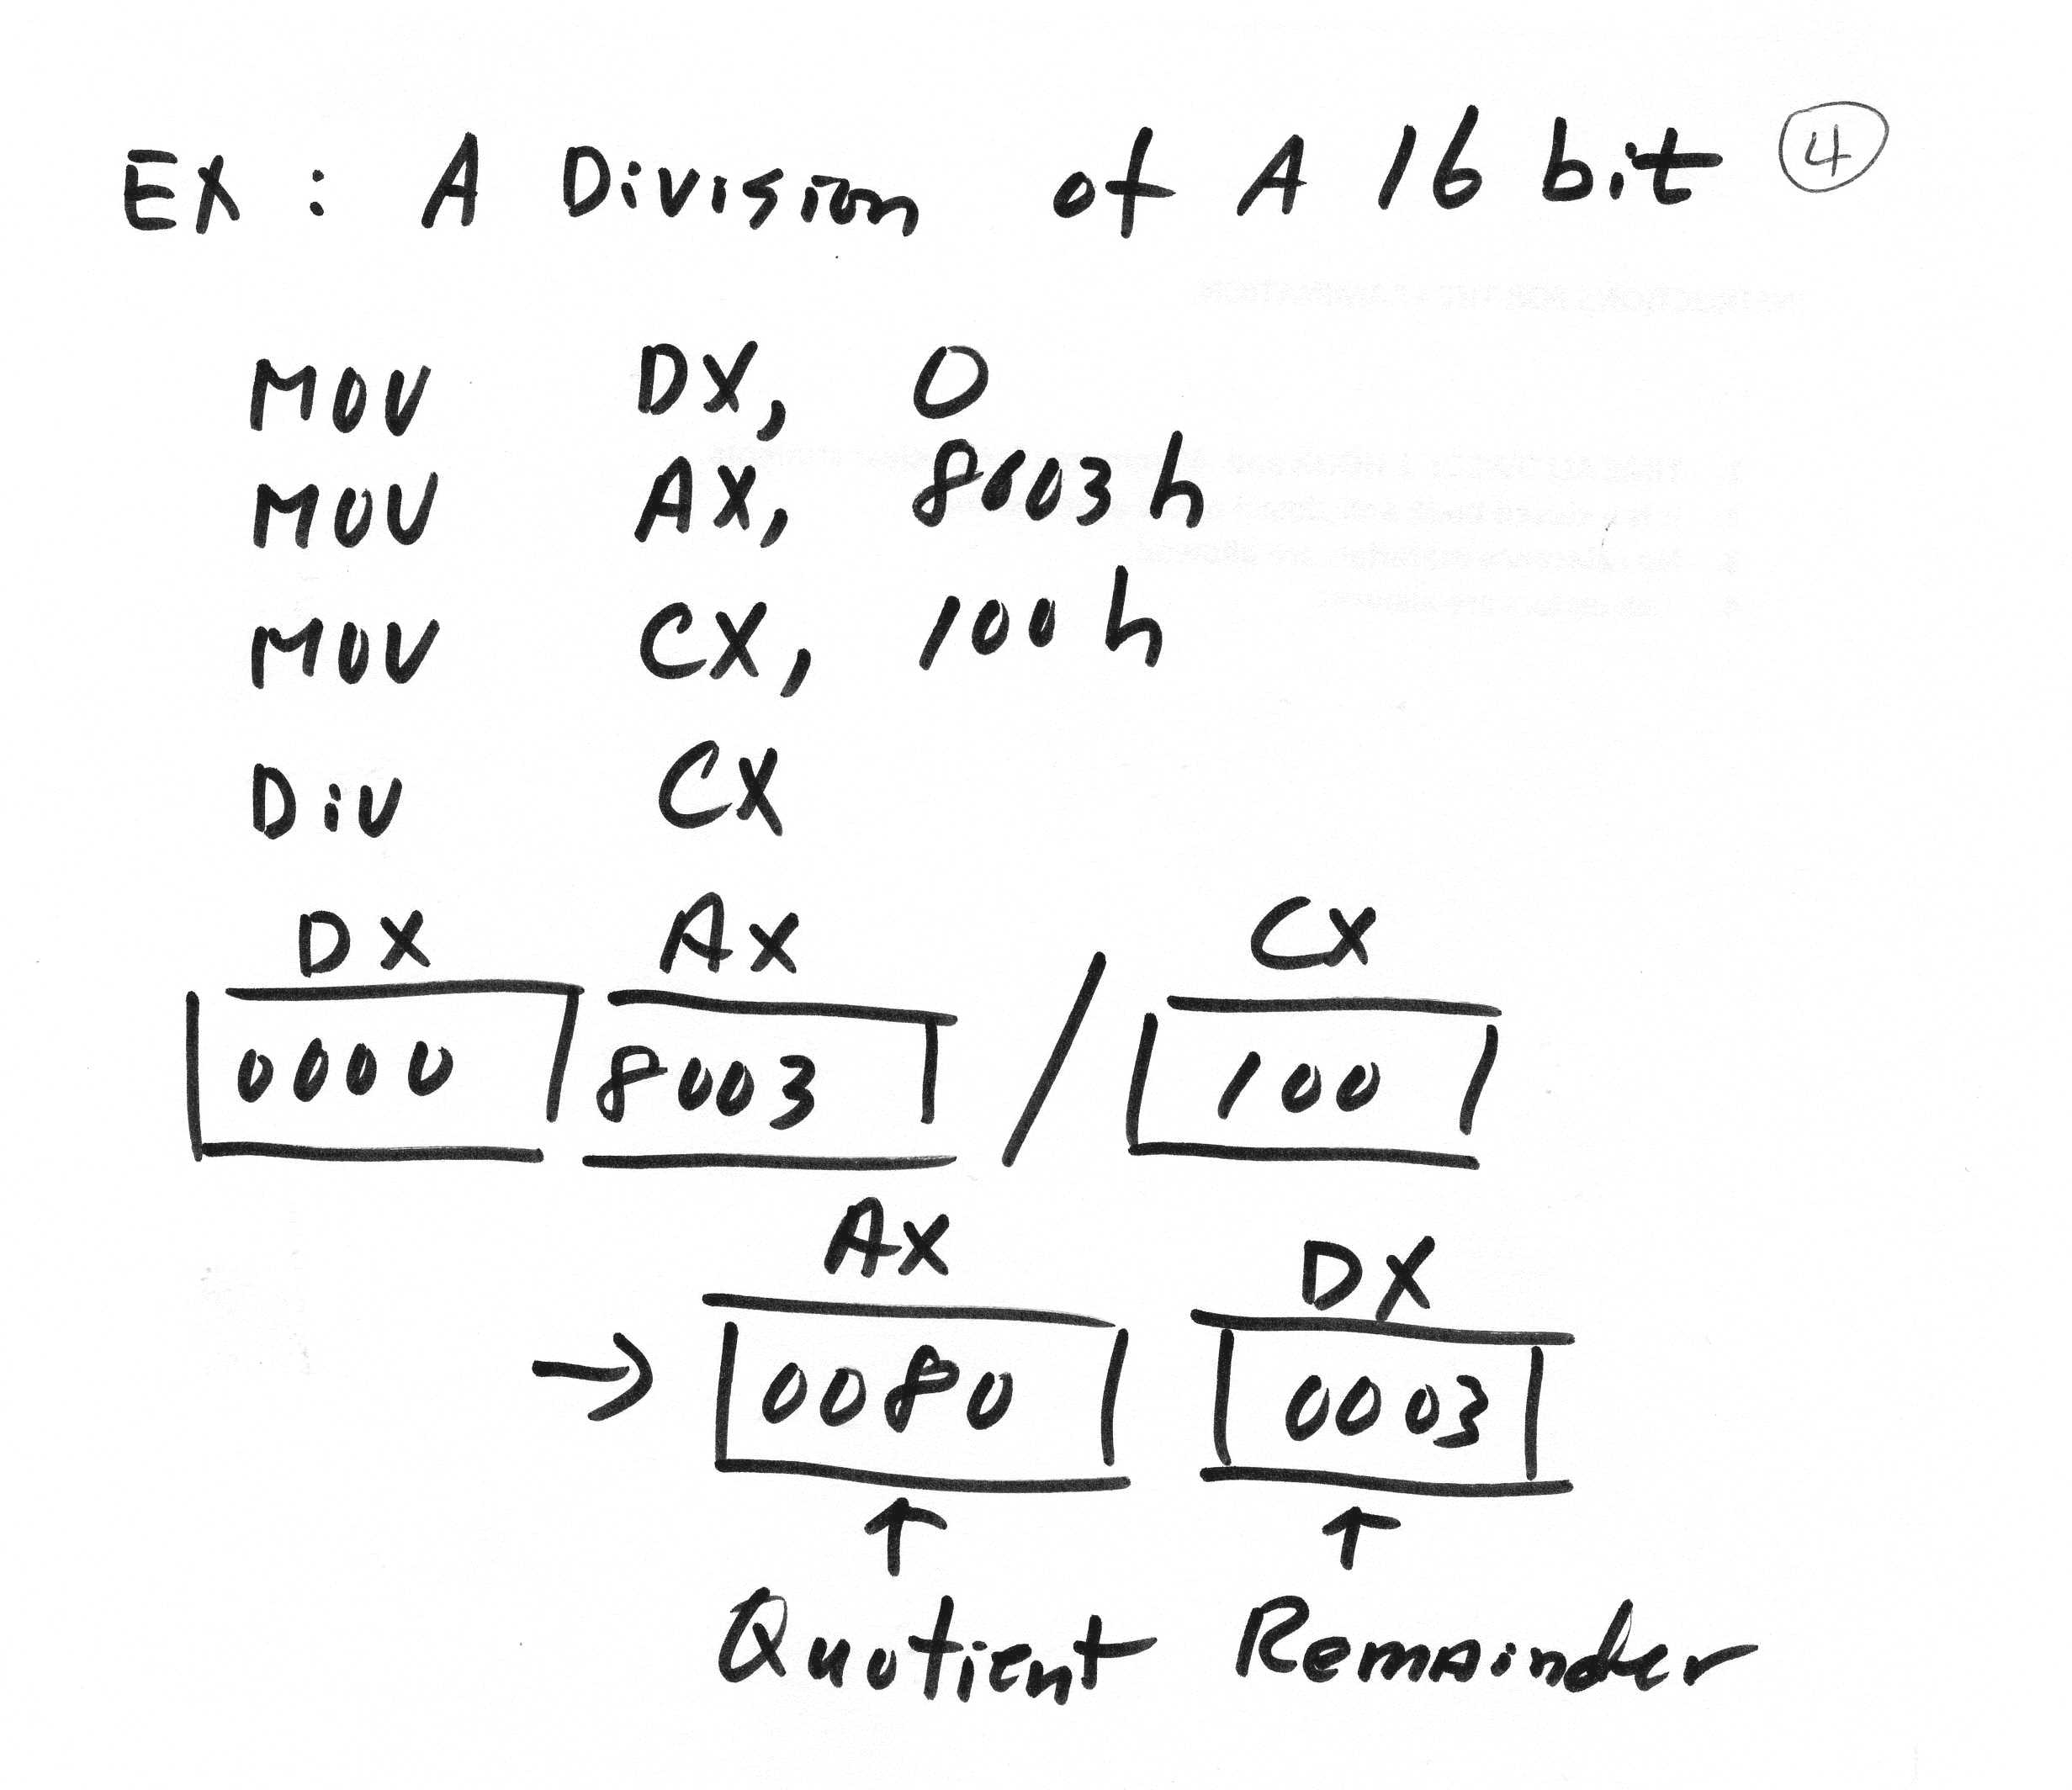 EX : A Division of A 16 bit 4
MOV DX, 0
MOV AX, 8003h
MOV CX, 100h
Div CX
DX AX CX
0000 8003 / 100
AX DX
→ 0080 0003
↑ ↑
Quotient Remainder